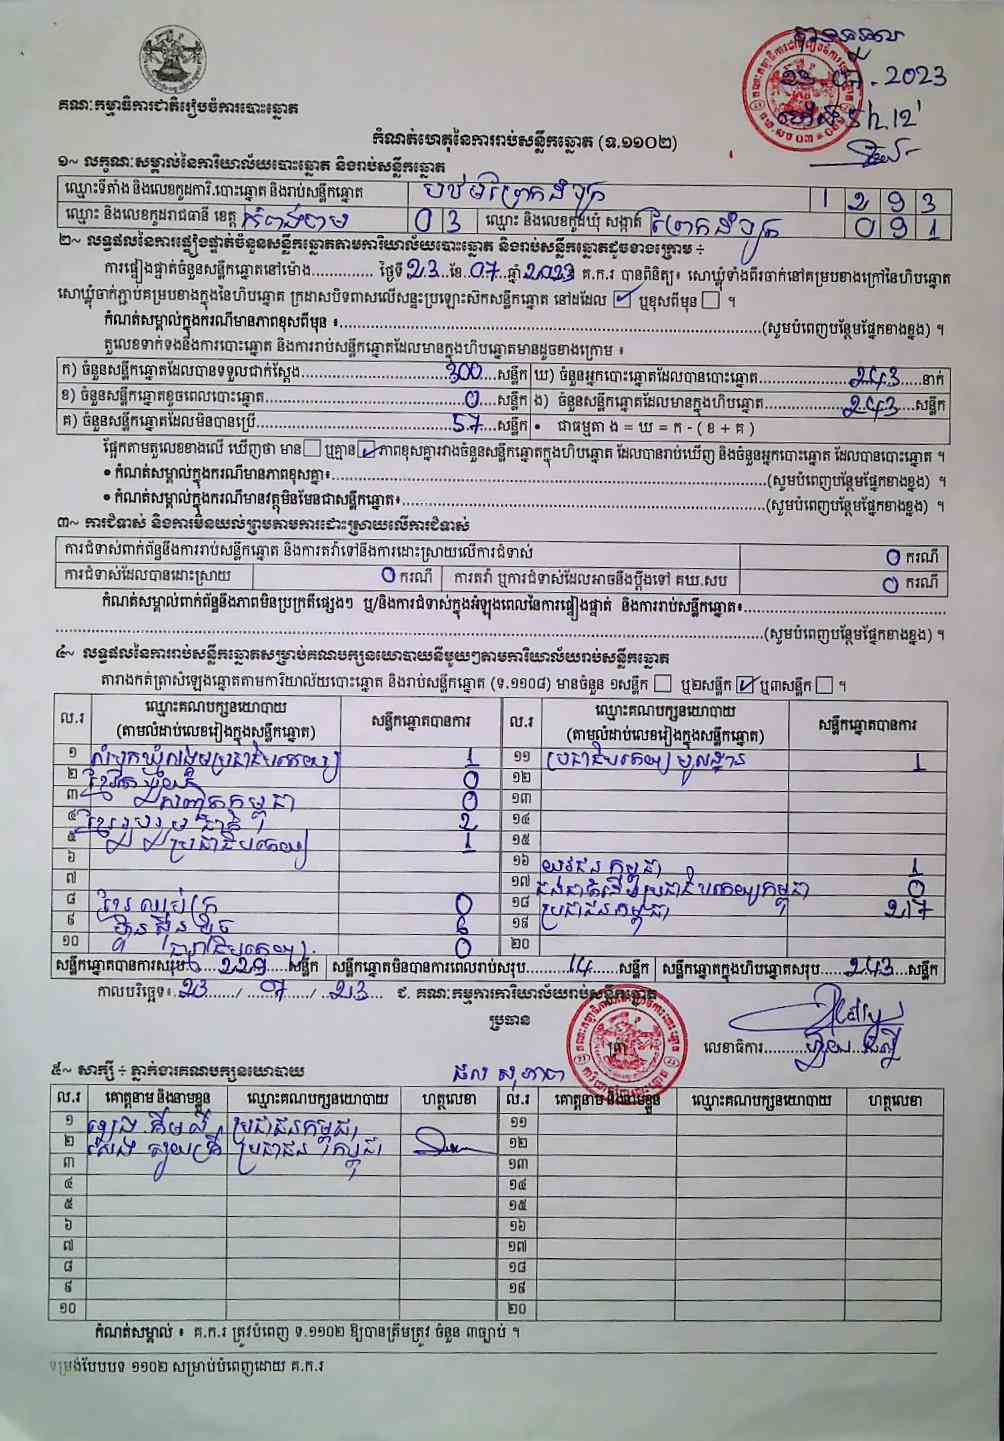 បានទទួល
23.07.2023
គណៈកម្មាធិការជាតិរៀបចំការបោះឆ្នោត
កំណត់ហេតុនៃការរាប់សន្លឹកឆ្នោត (ទ.១១០២)
១~ លក្ខណៈសម្គាល់នៃការិយាល័យបោះឆ្នោត និងរាប់សន្លឹកឆ្នោត
ឈ្មោះទីតាំង និងលេខកូដការិ.បោះឆ្នោត និងរាប់សន្លឹកឆ្នោត 1 2 9 3
ឈ្មោះ និងលេខកូដរាជធានី ខេត្ត កំពង់ចាម 0 3 ឈ្មោះ និងលេខកូដឃុំ សង្កាត់ 0 9 1
២~ លទ្ធផលនៃការផ្ទៀងផ្ទាត់ចំនួនសន្លឹកឆ្នោតតាមការិយាល័យបោះឆ្នោត និងរាប់សន្លឹកឆ្នោតដូចខាងក្រោម ÷
ការផ្ទៀងផ្ទាត់ចំនួនសន្លឹកឆ្នោតនៅម៉ោង.............. ថ្ងៃទី 23 ខែ 07 ឆ្នាំ 2023 គ.ក.រ បានពិនិត្យ៖ សោឃ្លុំទាំងពីរចាក់នៅគម្របខាងក្រៅនៃហិបឆ្នោត
សោឃ្លុំចាក់ភ្ជាប់គម្របខាងក្នុងនៃហិបឆ្នោត ក្រដាសបិទពាសលើសន្ទះប្រឡោះសិកសន្លឹកឆ្នោត នៅដដែល ☑ ឬខុសពីមុន ☐ ។
កំណត់សម្គាល់ក្នុងករណីមានភាពខុសពីមុន ៖..............(សូមបំពេញបន្ថែមផ្នែកខាងខ្នង) ។
តួលេខទាក់ទងនឹងការបោះឆ្នោត និងការរាប់សន្លឹកឆ្នោតដែលមានក្នុងហិបឆ្នោតមានដូចខាងក្រោម ៖
ក) ចំនួនសន្លឹកឆ្នោតដែលបានទទួលជាក់ស្តែង 300 សន្លឹក ឃ) ចំនួនអ្នកបោះឆ្នោតដែលបានបោះឆ្នោត 243 នាក់
ខ) ចំនួនសន្លឹកឆ្នោតខូចពេលបោះឆ្នោត 0 សន្លឹក ង) ចំនួនសន្លឹកឆ្នោតដែលមានក្នុងហិបឆ្នោត 243 សន្លឹក
គ) ចំនួនសន្លឹកឆ្នោតដែលមិនបានប្រើ 57 សន្លឹក • ជាធម្មតា ង = ឃ = ក - ( ខ + គ )
ផ្អែកតាមតួលេខខាងលើ ឃើញថា មាន ☐ ឬគ្មាន ☑ ភាពខុសគ្នារវាងចំនួនសន្លឹកឆ្នោតក្នុងហិបឆ្នោត ដែលបានរាប់ឃើញ និងចំនួនអ្នកបោះឆ្នោត ដែលបានបោះឆ្នោត ។
• កំណត់សម្គាល់ក្នុងករណីមានភាពខុសគ្នា៖..............(សូមបំពេញបន្ថែមផ្នែកខាងខ្នង) ។
• កំណត់សម្គាល់ក្នុងករណីមានវត្ថុមិនមែនជាសន្លឹកឆ្នោត៖..............(សូមបំពេញបន្ថែមផ្នែកខាងខ្នង) ។
៣~ ការជំទាស់ និងការមិនយល់ព្រមតាមការដោះស្រាយលើការជំទាស់
ការជំទាស់ពាក់ព័ន្ធនឹងការរាប់សន្លឹកឆ្នោត និងការតវ៉ាទៅនឹងការដោះស្រាយលើការជំទាស់ 0 ករណី
ការជំទាស់ដែលបានដោះស្រាយ 0 ករណី ការតវ៉ា ឬការជំទាស់ដែលអាចនឹងប្តឹងទៅ គឃ.សប 0 ករណី
កំណត់សម្គាល់ពាក់ព័ន្ធនឹងភាពមិនប្រក្រតីផ្សេងៗ ឬ/និងការជំទាស់ក្នុងអំឡុងពេលនៃការផ្ទៀងផ្ទាត់ និងការរាប់សន្លឹកឆ្នោត៖..............
..............(សូមបំពេញបន្ថែមផ្នែកខាងខ្នង) ។
៤~ លទ្ធផលនៃការរាប់សន្លឹកឆ្នោតសម្រាប់គណបក្សនយោបាយនីមួយៗតាមការិយាល័យរាប់សន្លឹកឆ្នោត
តារាងកត់ត្រាសំឡេងឆ្នោតតាមការិយាល័យបោះឆ្នោត និងរាប់សន្លឹកឆ្នោត (ទ.១១០៨) មានចំនួន ១សន្លឹក ☐ ឬ២សន្លឹក ☑ ឬ៣សន្លឹក ☐ ។
ល.រ ឈ្មោះគណបក្សនយោបាយ (តាមលំដាប់លេខរៀងក្នុងសន្លឹកឆ្នោត) សន្លឹកឆ្នោតបានការ ល.រ ឈ្មោះគណបក្សនយោបាយ (តាមលំដាប់លេខរៀងក្នុងសន្លឹកឆ្នោត) សន្លឹកឆ្នោតបានការ
១ 1 ១១ ប្រជាធិបតេយ្យមូលដ្ឋាន 1
២ 0 ១២
៣ 0 ១៣
៤ 2 ១៤
៥ ប្រជាធិបតេយ្យ 1 ១៥
៦ ១៦ យុវជនកម្ពុជា 1
៧ ១៧ 0
៨ 0 ១៨ ប្រជាជនកម្ពុជា 217
៩ ហ៊្វុនស៊ិនប៉ិច ១៩
១០ 0 ២០
សន្លឹកឆ្នោតបានការសរុប 229 សន្លឹក សន្លឹកឆ្នោតមិនបានការពេលរាប់សរុប 14 សន្លឹក សន្លឹកឆ្នោតក្នុងហិបឆ្នោតសរុប 243 សន្លឹក
កាលបរិច្ឆេទ៖ 23 / 07 / 23 ជ. គណៈកម្មការការិយាល័យរាប់សន្លឹកឆ្នោត
ប្រធាន
លេខាធិការ
៥~ សាក្សី ÷ ភ្នាក់ងារគណបក្សនយោបាយ
ល.រ គោត្តនាម និងនាមខ្លួន ឈ្មោះគណបក្សនយោបាយ ហត្ថលេខា ល.រ គោត្តនាម និងនាមខ្លួន ឈ្មោះគណបក្សនយោបាយ ហត្ថលេខា
១ ប្រជាជនកម្ពុជា ១១
២ ប្រជាជនកម្ពុជា ១២
៣ ១៣
៤ ១៤
៥ ១៥
៦ ១៦
៧ ១៧
៨ ១៨
៩ ១៩
១០ ២០
កំណត់សម្គាល់ ៖ គ.ក.រ ត្រូវបំពេញ ទ.១១០២ ឱ្យបានត្រឹមត្រូវ ចំនួន ៣ច្បាប់ ។
ទម្រង់បែបបទ ១១០២ សម្រាប់បំពេញដោយ គ.ក.រ